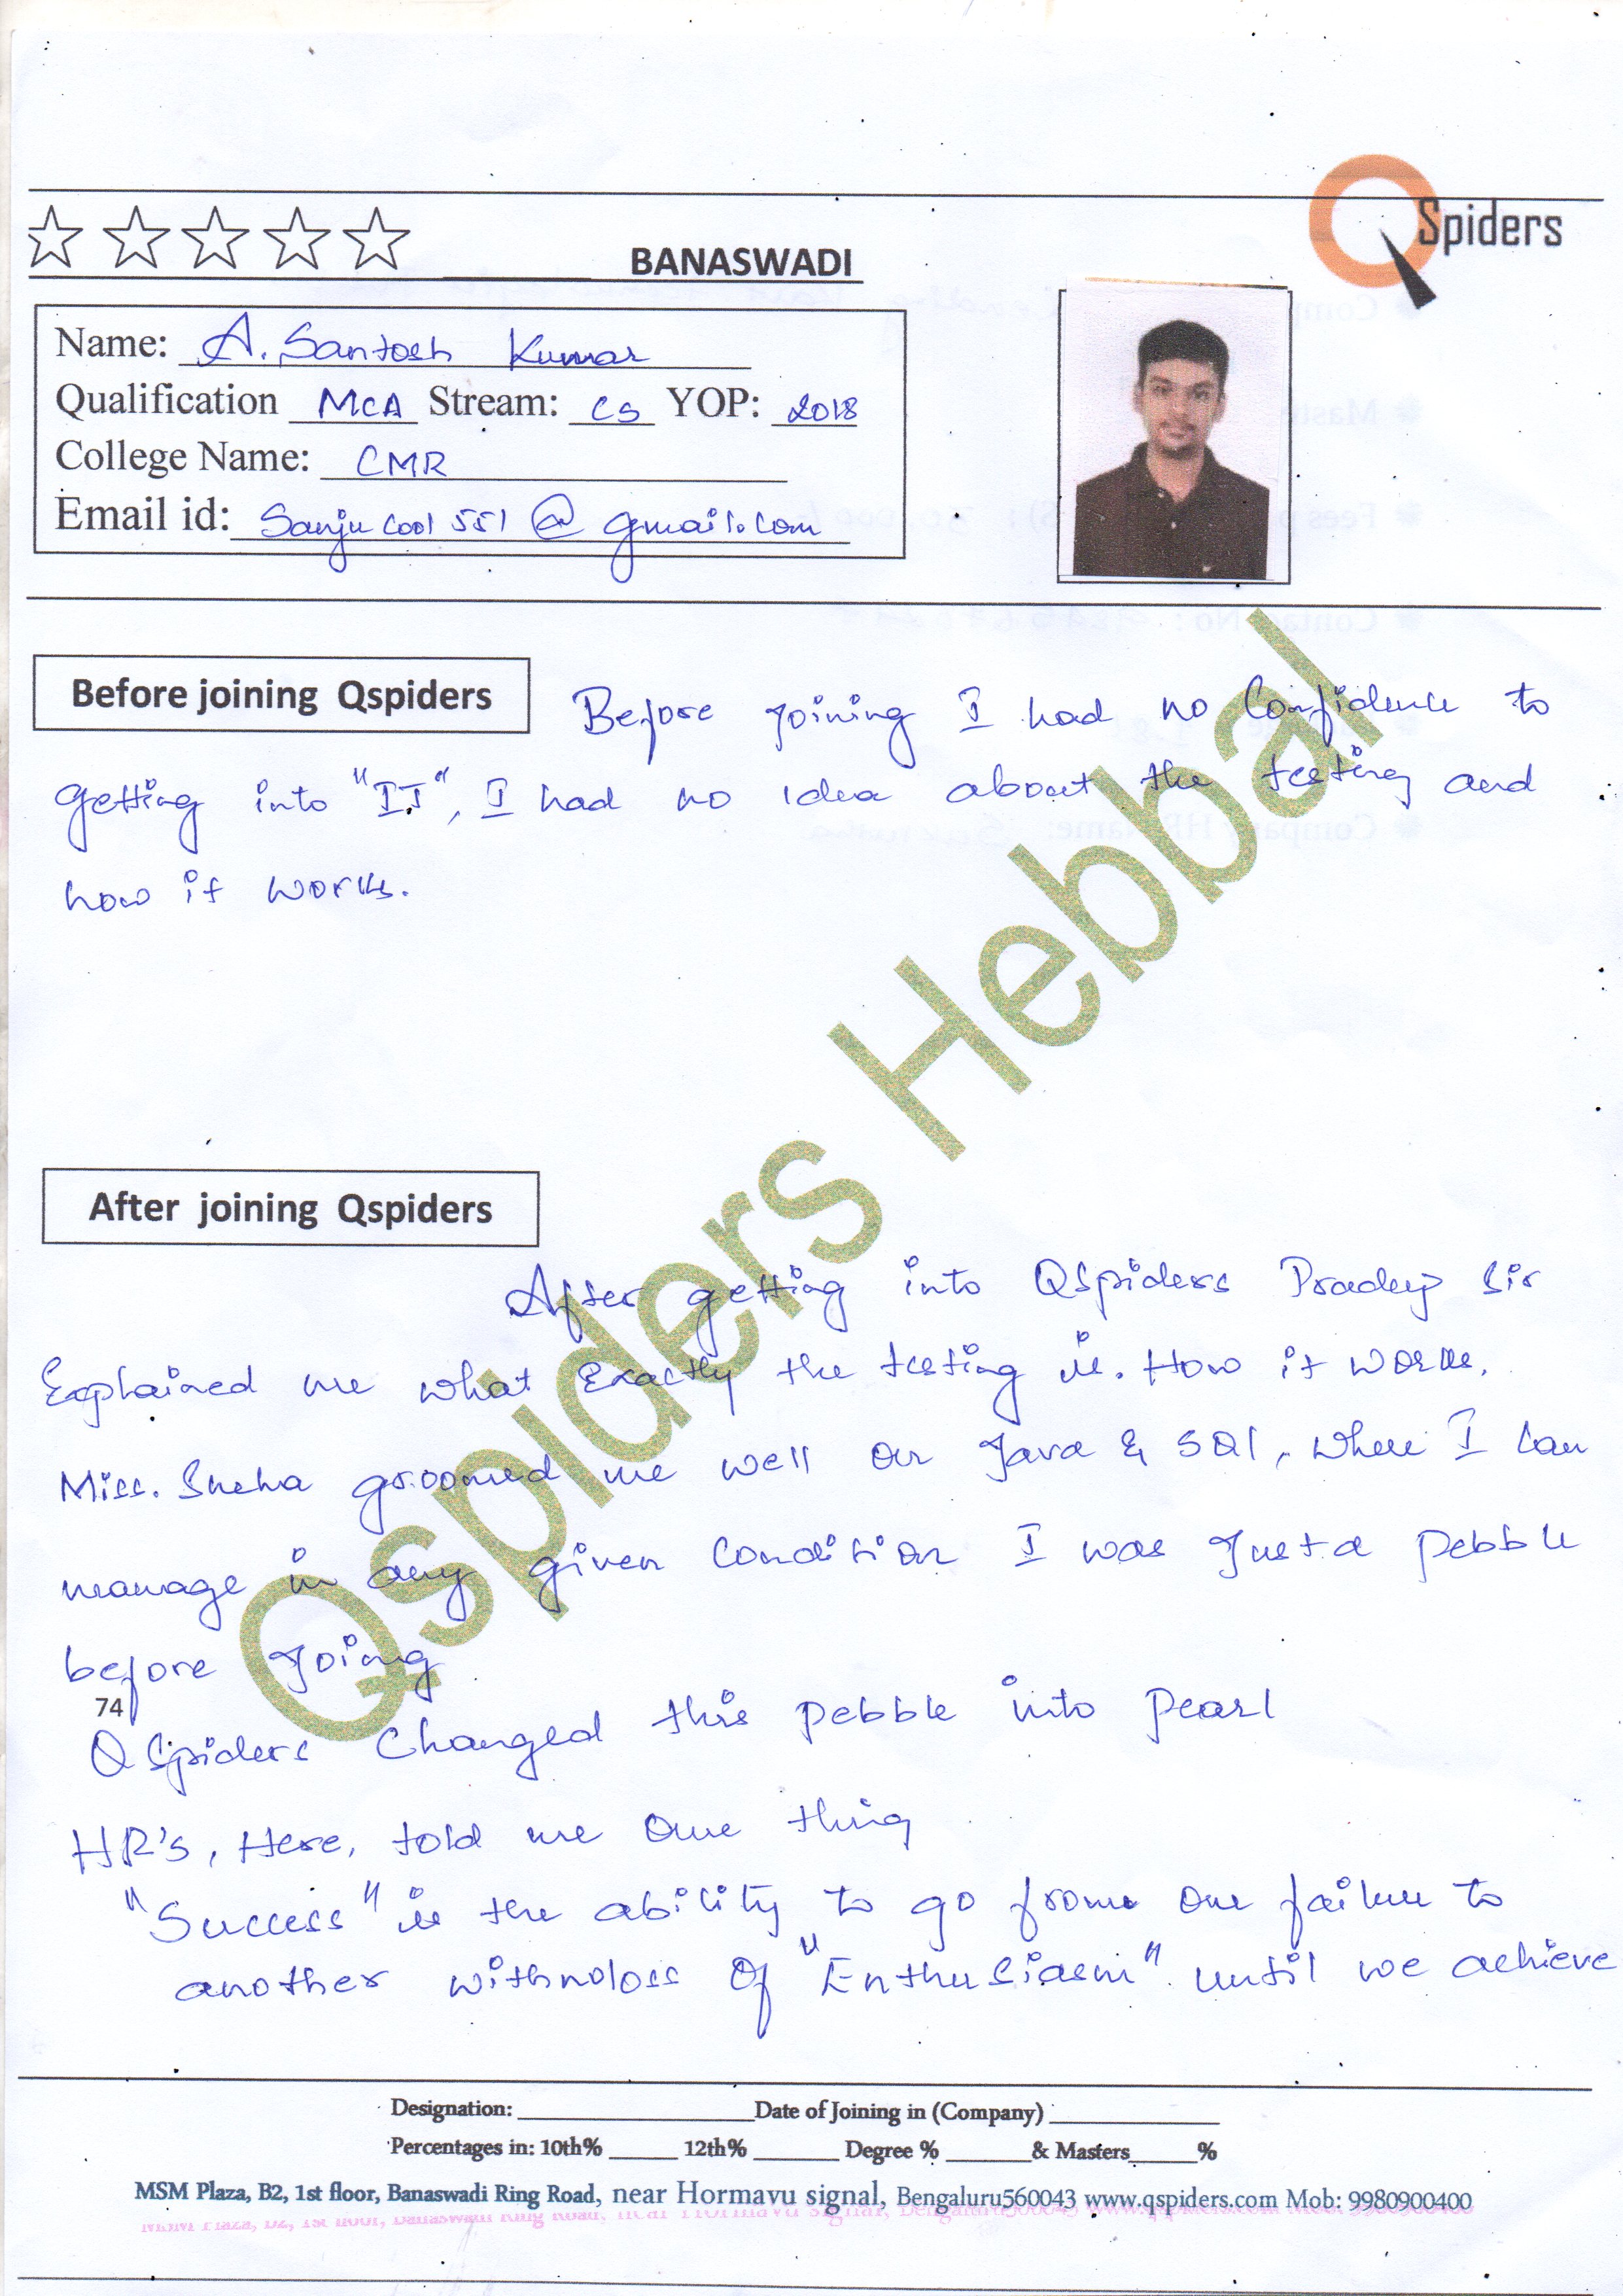 QSpiders
BANASWADI
Name: A. Santosh Kumar
Qualification MCA Stream: CS YOP: 2018
College Name: CMR
Email id: Sanjucool551@gmail.com
Before joining Qspiders
Before joining I had no Confidence to
getting into "IT", I had no idea about the testing and
how it works.
After joining Qspiders
After getting into QSpiders Pradeep Sir
Explained me what Exactly the testing is. How it works.
Miss. Sneha groomed me well on Java & SQl, where I can
manage in any given condition I was Just a pebble
before Joing
74
QSpiders Changed this pebble into pearl
HR's, Here, told me one thing
"Success" is the ability to go from one failure to
another withnoloss Of "Enthusiasm" until we achieve
Qspiders Hebbal
Designation: Date of Joining in (Company)
Percentages in: 10th% 12th% Degree % & Masters %
MSM Plaza, B2, 1st floor, Banaswadi Ring Road, near Hormavu signal, Bengaluru560043 www.qspiders.com Mob: 9980900400